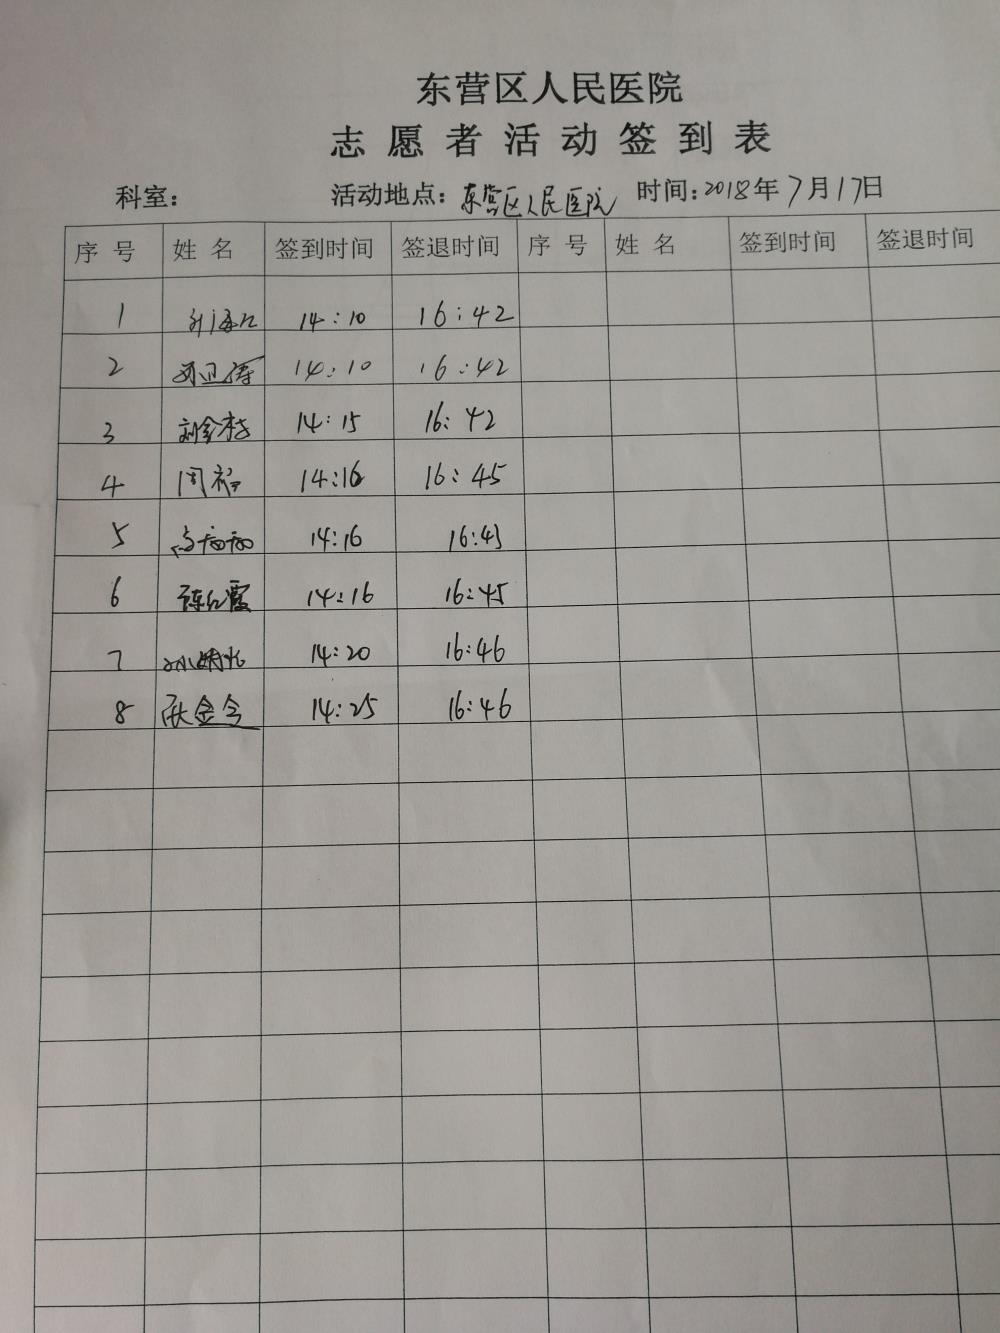 东营区人民医院
志愿者活动签到表
科室： 活动地点：东营区人民医院 时间：2018年7月17日
序号 姓名 签到时间 签退时间 序号 姓名 签到时间 签退时间
1 14:10 16:42
2 14:10 16:42
3 14:15 16:42
4 周 14:16 16:45
5 14:16 16:43
6 陈红霞 14:16 16:45
7 14:20 16:46
8 金令 14:25 16:46